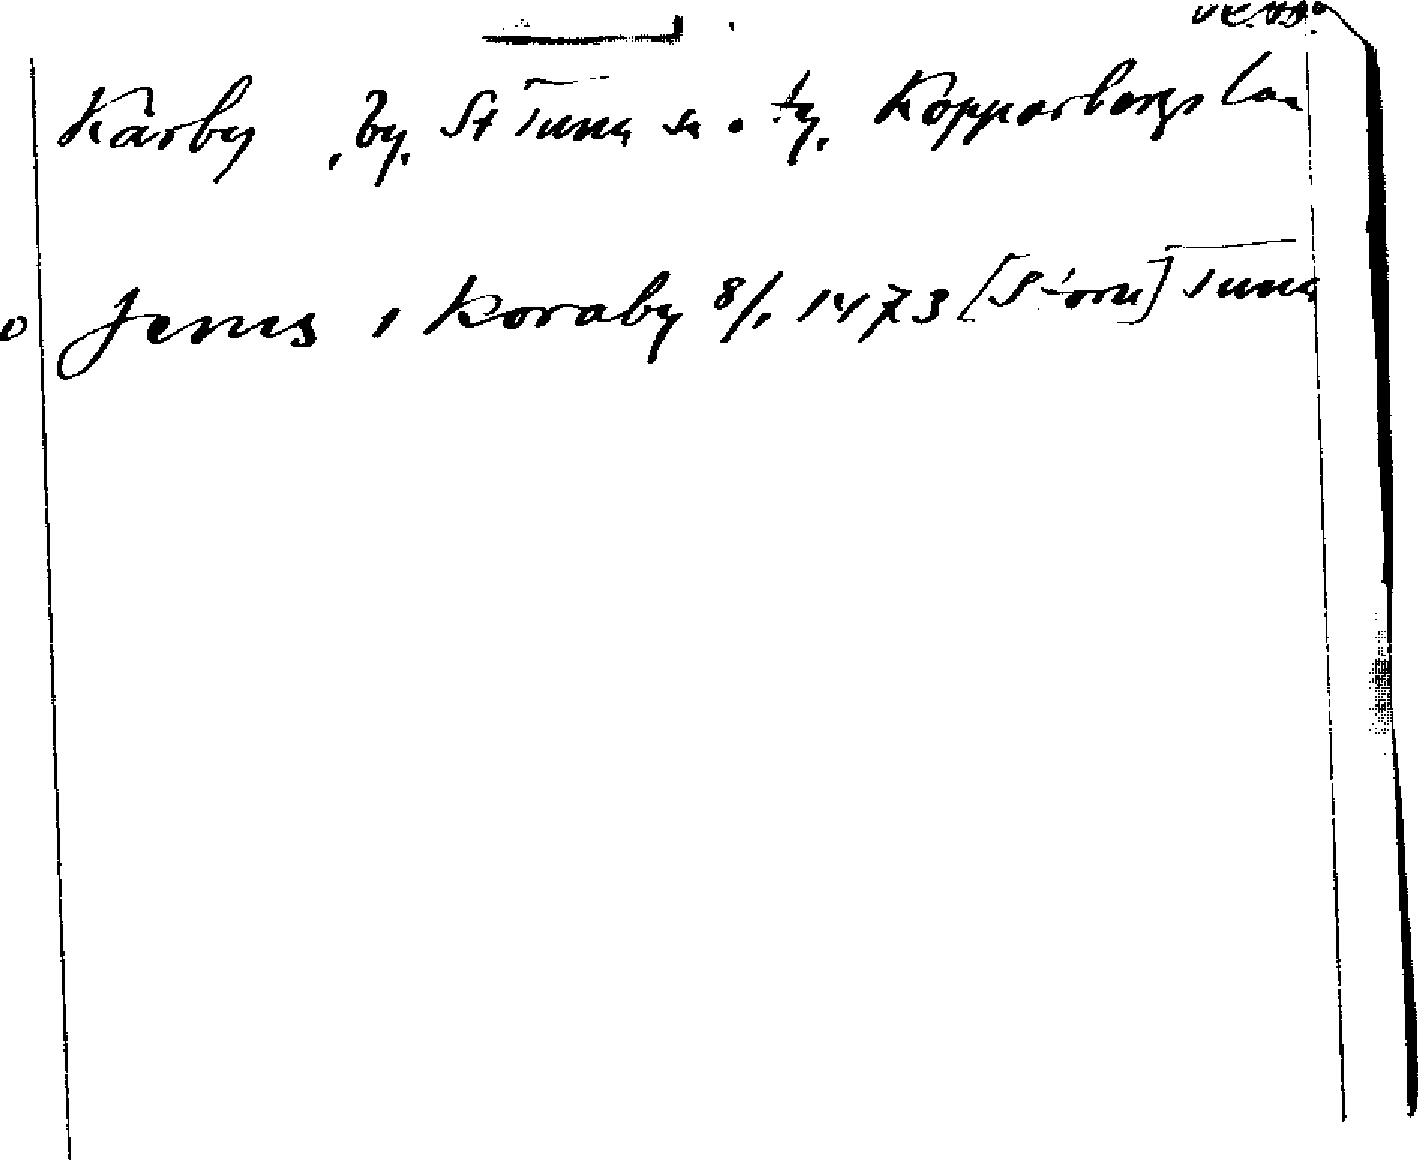 verso
Kårby, by, St Tuna sn o. tg, Kopparbergs län
Jenus i Koraby 8/1 1473 [Stora] Tuna